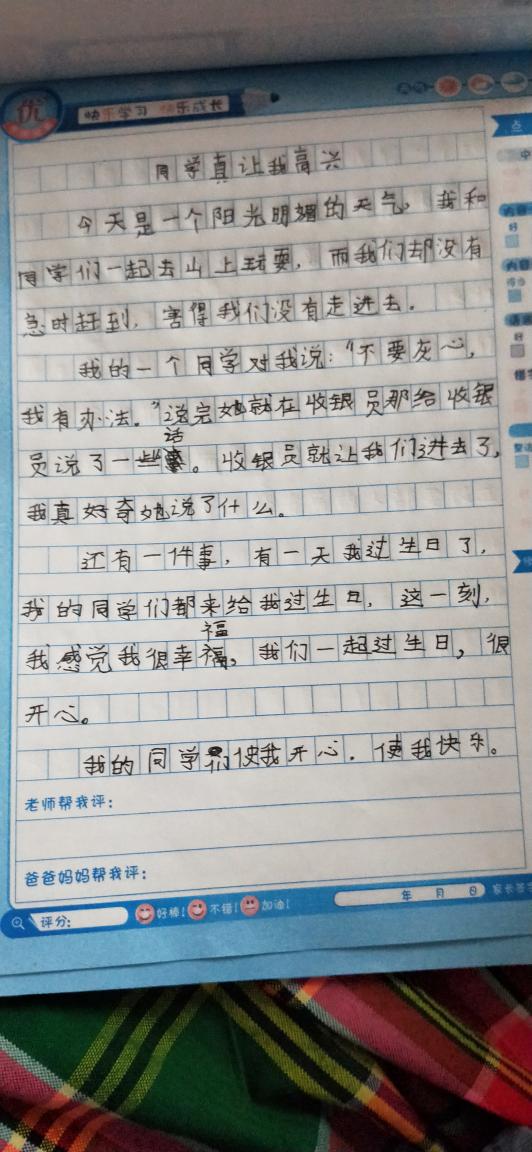 优
快乐学习 快乐成长
同学真让我高兴
今天是一个阳光明媚的天气，我和
同学们一起去山上玩耍，而我们却没有
急时赶到，害得我们没有走进去。
我的一个同学对我说：“不要灰心，
我有办法。”说完她就在收银员那给收银
话
员说了一些。收银员就让我们进去了，
我真好奇她说了什么。
还有一件事，有一天我过生日了，
我的同学们都来给我过生日，这一刻，
福
我感觉我很幸福，我们一起过生日，很
开心。
我的同学们使我开心，使我快乐。
老师帮我评：
爸爸妈妈帮我评：
评分： 好棒！ 不错！ 加油！ 年 月 日 家长签字
点
中
内容
好
内容
得当
好